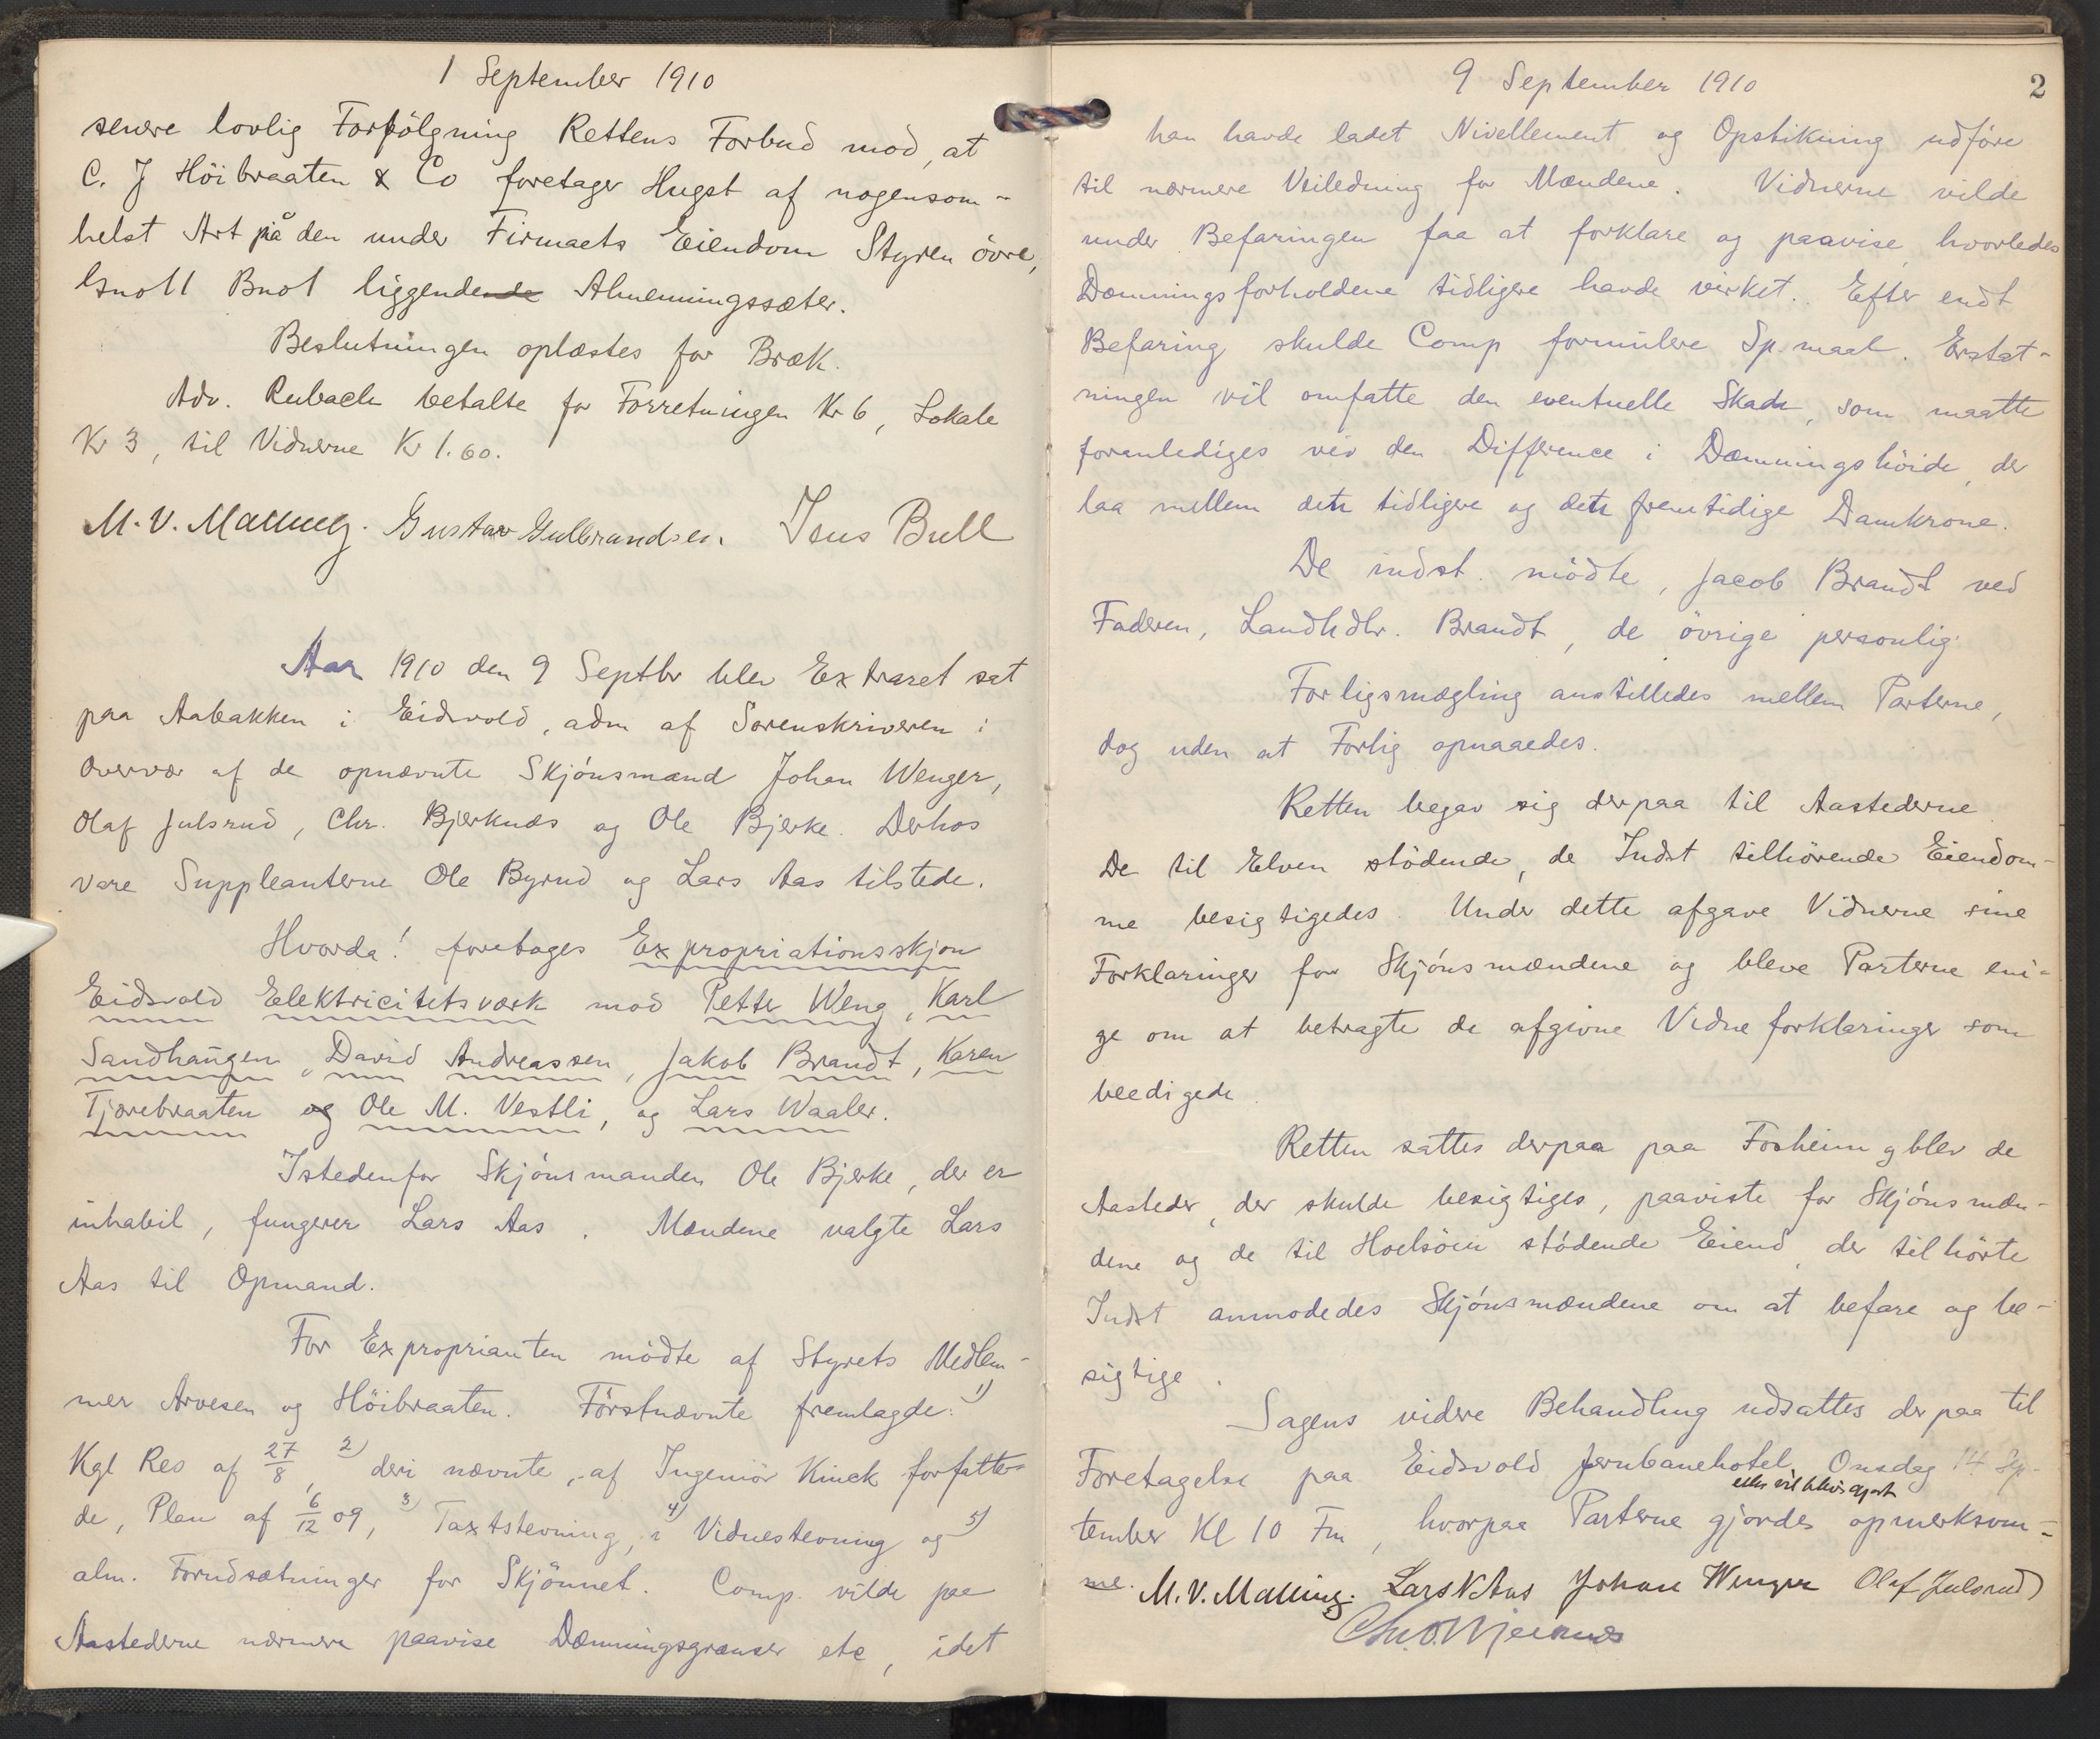 1 September 1910
senere lovlig Forfölgning Rettens Forbud mod, at
C. J Höibraaten & Co foretager Hugst af nogensom-
helst Art på den under Firmaets Eiendom Styren övre,
Gno 11 Bno 1 liggendende Almenningssæter.
Beslutningen oplæstes for Bræk.
Adv. Rubach betalte for Forretningen Kr 6, Lokale
Kr 3, til Vidnerne Kr 1.60.
M. V. Malling. Gustav Gulbrandsen. Jens Bull
Aar 1910 den 9 Septbr blev Extraret sat
paa Aabakken i Eidsvold, adm af Sorenskriveren i
Overvær af de opnævnte Skjönsmænd Johan Wenger,
Olaf Julsrud, Chr. Bjerknæs og Ole Bjerke. Derhos
vare Suppleanterne Ole Byrud og Lars Aas tilstede.
Hvorda! foretoges Expropriationsskjøn
Eidsvold Elektricitetsværk mod Petter Weng, Karl
Sandhaugen, David Andreassen, Jakob Brandt, Karen
Tjærebraaten og Ole M. Vestli, og Lars Waaler.
Istedenfor Skjönsmanden Ole Bjerke, der er
inhabil, fungerer Lars Aas. Mændene valgte Lars
Aas til Opmand.
For Exproprianten mödte af Styrets Medlem-
mer Arvesen og Höibraaten. Förstnævnte fremlagde: 1)
Kgl Res af 27/8, 2) deri nævnte, af Ingeniör Kinck forfatte-
de, Plan af 6/12 09, 3) Taxtstevning, 4) Vidnestevning og 5)
alm. Forudsætninger for Skjönnet. Comp. vilde paa
Aastederne nærmere paavise Dæmningsgrænser etc, idet
9 September 1910
2
han havde ladet Nivellement og Opstikning udföre
til nærmere Veiledning for Mændene. Vidnerne vilde
under Befaringen faa at forklare og paavise hvorledes
Dæmningsforholdene tidligere havde virket. Efter endt
Befaring skulde Comp formulere Sp.maal. Erstat-
ningen vil omfatte den eventuelle Skade, som maatte
foranlediges ved den Difference i Dæmningshöide, der
laa mellem den tidligere og den fremtidige Damkrone.
De indst. mödte, Jacob Brandt ved
Faderen, Landhdlr. Brandt, de övrige personlig.
Forligsmægling anstilledes mellem Parterne,
dog uden at Forlig opnaaedes.
Retten begav sig derpaa til Aastederne
De til Elven stödende, de Indst tilhörende Eiendom-
me besigtigedes. Under dette afgave Vidnerne sine
Forklaringer for Skjönsmændene og bleve Parterne eni-
ge om at betragte de afgivne Vidneforklaringer som
beedigede.
Retten sattes derpaa paa Fosheim og blev de
Aasteder, der skulde besigtiges, paaviste for Skjönsmæn-
dene og de til Holsöen stödende Eiend, der tilhörte
Indst anmodedes Skjönsmændene om at befare og be-
sigtige.
Sagens videre Behandling udsattes derpaa til
Foretagelse paa Eidsvold Jernbanehotel, Onsdag 14 Sep-
eller vil blive gjort
tember Kl 10 Fm, hvorpaa Parterne gjordes opmerksom-
me. M. V. Malling. Lars N Aas Johan Wenger Olaf Julsrud
Chr. O. Bjerknæs